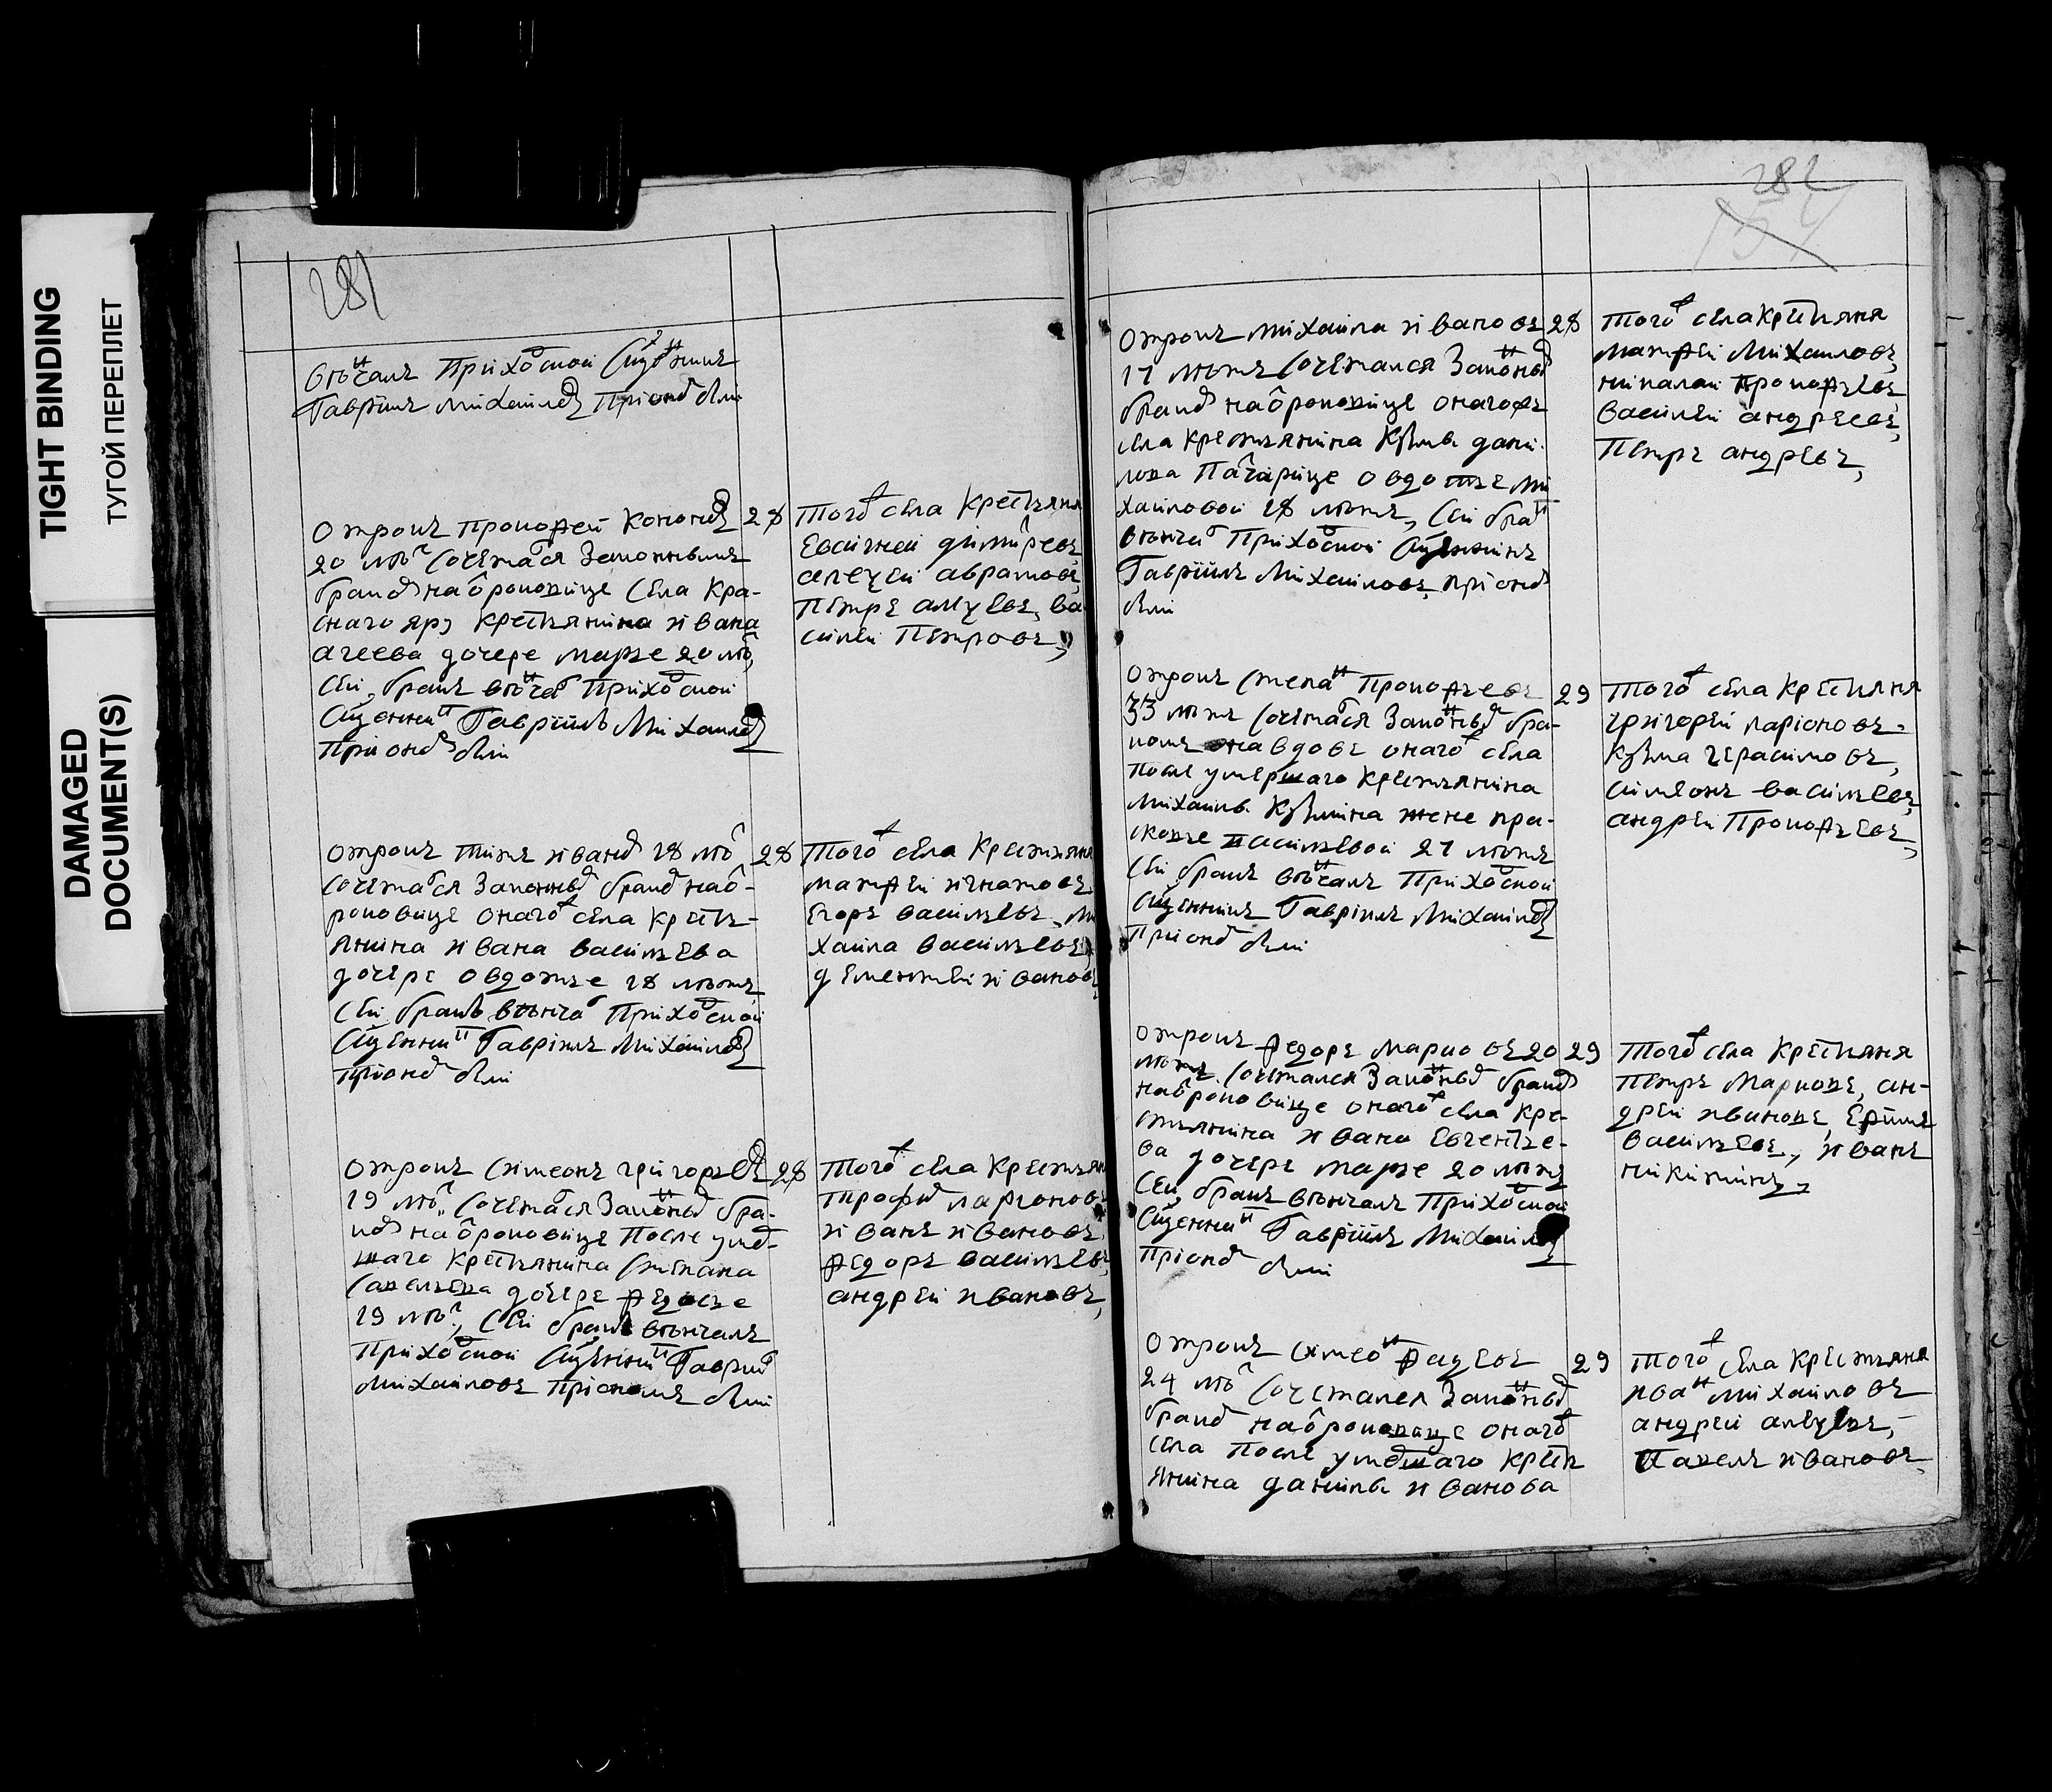 TIGHT BINDING
ТУГОЙ ПЕРЕПЛЕТ
DAMAGED
DOCUMENT(S)
281
венчалъ приходской священникъ
Гаврiилъ Михайловъ
отрокъ Прокофей
20 летъ сочетался законнымъ
бракомъ на отроковице села Кра-
снаго яру крестьянина Ивана
Агеева дочере Марье 20 летъ
сей бракъ венчалъ приходской
священникъ Гаврiилъ Михайловъ
28
того села крестьяня
Евсигней Димитревъ
Алеѯей Аврамовъ
Петръ Алеѯевъ, Ва
силей Петровъ,
отрокъ Титъ Ивановъ 18 летъ
сочетался законнымъ бракомъ на от-
роковице онаго села кресть-
янина Ивана Васильева
дочере Овдотье 18 летъ
сей бракъ венчалъ приходской
священникъ Гаврiилъ Михайловъ
28
того села крестьяня
Матфей Игнатовъ
Егоръ Васильевъ, Ми
хайла Васильевъ,
Дементей Ивановъ,
отрокъ Симеонъ Григорьевъ
19 летъ сочетался законнымъ бра-
комъ на отроковице после умер-
шаго крестьянина Степана
Савельева дочере Федосье
19 летъ, сей бракъ венчалъ
приходской священникъ Гаврилъ
Михайловъ
28
того села крестьян
Трофимъ Ларионовъ
Иванъ Ивановъ
Федоръ Васильевъ,
Андрей Ивановъ,
282
отрокъ Михайла Ивановъ
17 летъ сочетался законнымъ
бракомъ на отроковице онагожъ
села крестьянина Кузмы Дани-
лова Овдотье Ми
хайловой 18 летъ, сей бракъ
венчалъ приходской священникъ
Гаврiилъ Михайловъ,
28
того села крестьяня
Матфей Михайловъ,
Николай Прокофьевъ,
Василей Андреевъ,
Петръ Андревъ,
отрокъ Степанъ Прокофьевъ
33 летъ сочетался законнымъ бра-
комъ на вдове онаго села
после умершаго крестьянина
Михайлы Кузмина жене Пра-
сковье Васильевой 27 летъ
сей бракъ венчалъ приходской
священникъ Гаврiилъ Михайловъ
29
того села крестьяня
Григорей Ларiоновъ,
Кузма Герасимовъ,
Симеонъ Васильевъ,
Андрей Прокофьевъ,
отрокъ Федоръ Марковъ 20
летъ сочетался законнымъ бракомъ
на отроковице онаго села кре-
стьянина Ивана Евгенье-
ва дочере Марье 20 летъ
сей бракъ венчалъ приходской
священникъ Гаврiилъ Михайловъ
29
того села крестьяня
Петръ Марковъ, Ан-
дрей Ивановъ, Ефимъ
Васильевъ, Иванъ
Никитинъ,
отрокъ Симеонъ
24 летъ сочетался законнымъ
бракомъ на отроковице онаго
села после умершаго кресть
янина Данилы Иванова
29
того села крестьяня
Иванъ Михайловъ
Андрей Алеѯевъ,
Павелъ Ивановъ,